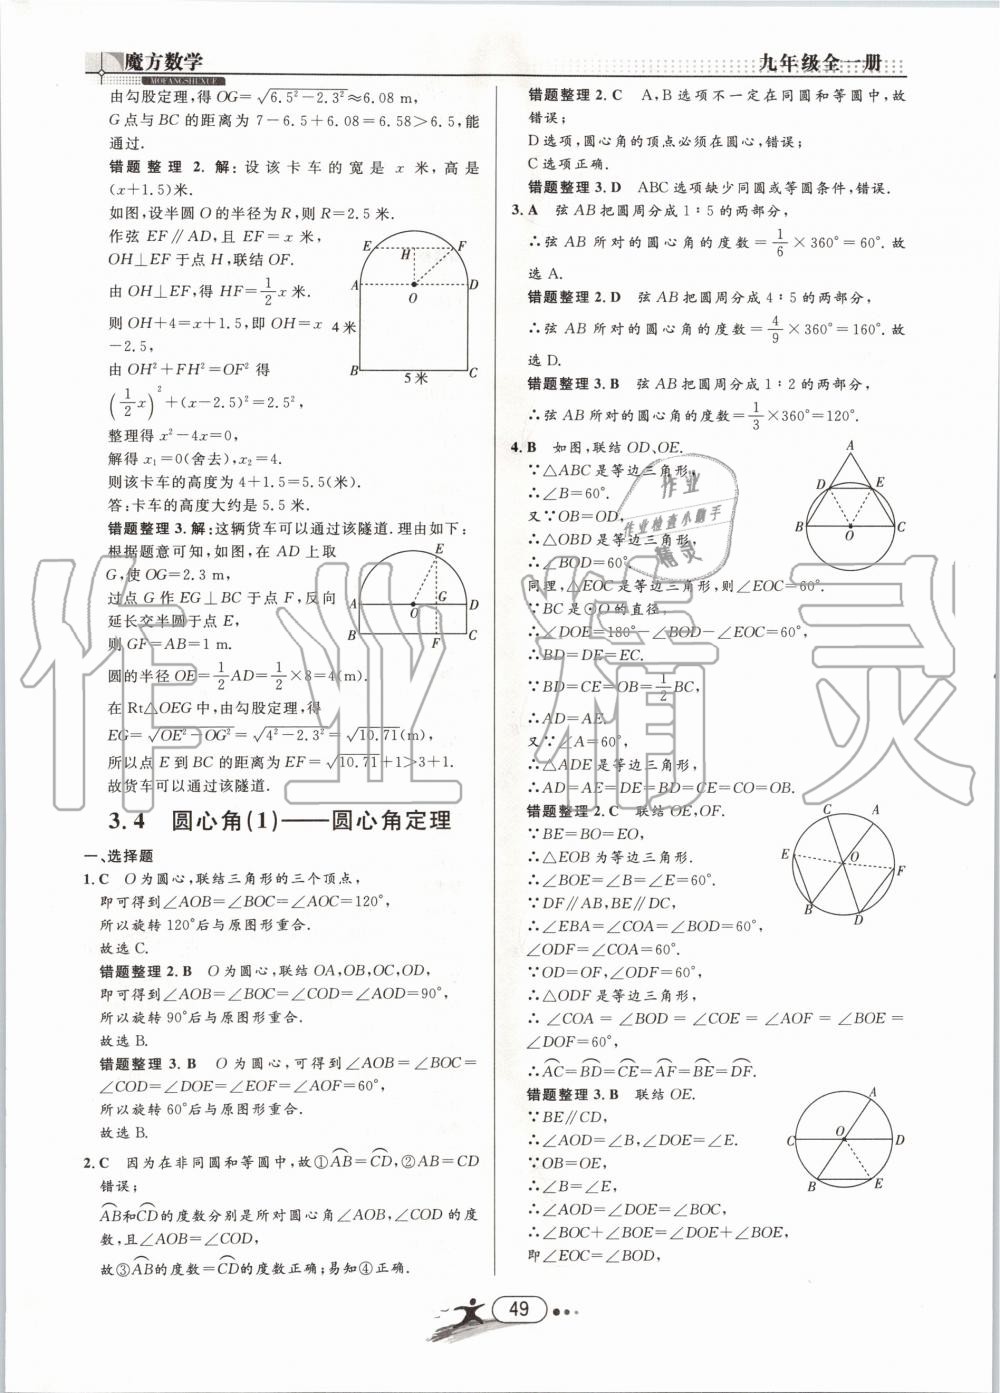 魔方数学
MOFANGSHUXUE
九年级全一册
由勾股定理,得 OG=√6.5²-2.3²≈6.08 m,
G点与 BC 的距离为 7-6.5+6.08=6.58>6.5,能
通过.
错题整理 2. 解: 设该卡车的宽是 x 米,高是
(x+1.5)米.
如图,设半圆 O 的半径为 R,则 R=2.5 米.
作弦 EF∥AD,且 EF=x 米,
OH⊥EF 于点 H,联结 OF.
由 OH⊥EF,得 HF=1/2x 米.
则 OH+4=x+1.5,即 OH=x
-2.5,
由 OH²+FH²=OF² 得
(1/2x)²+(x-2.5)²=2.5²,
整理得 x²-4x=0,
解得 x₁=0(舍去),x₂=4.
则该卡车的高度为 4+1.5=5.5(米).
答:卡车的高度大约是 5.5 米.
E
F
H
A
D
O
4米
B
5米
C
错题整理 3. 解:这辆货车可以通过该隧道.理由如下:
根据题意可知,如图,在 AD 上取
G,使 OG=2.3 m,
过点 G 作 EG⊥BC 于点 F,反向
延长交半圆于点 E,
则 GF=AB=1 m.
圆的半径 OE=1/2AD=1/2×8=4(m).
在 Rt△OEG 中,由勾股定理,得
EG=√OE²-OG²=√4²-2.3²=√10.71(m),
所以点 E 到 BC 的距离为 EF=√10.71+1>3+1.
故货车可以通过该隧道.
E
G
A
O
D
B
F
C
3.4 圆心角(1)——圆心角定理
一、选择题
1. C O 为圆心,联结三角形的三个顶点,
即可得到∠AOB=∠BOC=∠AOC=120°,
所以旋转 120°后与原图形重合.
故选 C.
错题整理 2. B O 为圆心,联结 OA,OB,OC,OD,
即可得到∠AOB=∠BOC=∠COD=∠AOD=90°,
所以旋转 90°后与原图形重合.
故选 B.
错题整理 3. B O 为圆心,可得到∠AOB=∠BOC=
∠COD=∠DOE=∠EOF=∠AOF=60°,
所以旋转 60°后与原图形重合.
故选 B.
2. C 因为在非同圆和等圆中,故①A͡B=C͡D,②AB=CD
错误;
A͡B和C͡D的度数分别是所对圆心角∠AOB,∠COD 的度
数,且∠AOB=∠COD,
故③A͡B的度数=C͡D的度数正确;易知④正确.
错题整理 2. C A,B 选项不一定在同圆和等圆中,故
错误;
D 选项,圆心角的顶点必须在圆心,错误;
C 选项正确.
错题整理 3. D ABC 选项缺少同圆或等圆条件,错误.
3. A 弦 AB 把圆周分成 1∶5 的两部分,
∴弦 AB 所对的圆心角的度数=1/6×360°=60°. 故
选 A.
错题整理 2. D 弦 AB 把圆周分成 4∶5 的两部分,
∴弦 AB 所对的圆心角的度数=4/9×360°=160°. 故
选 D.
错题整理 3. B 弦 AB 把圆周分成 1∶2 的两部分,
∴弦 AB 所对的圆心角的度数=1/3×360°=120°.
4. B 如图,联结 OD、OE.
∵△ABC 是等边三角形,
∴∠B=60°.
又∵OB=OD,
∴△OBD 是等边三角形,
∴∠BOD=60°.
同理,△EOC 是等边三角形,则∠EOC=60°.
∵BC 是⊙O 的直径,
∴∠DOE=180°-∠BOD-∠EOC=60°,
∴BD=DE=EC.
∵BD=CE=OB=1/2BC,
∴AD=AE.
又∵∠A=60°,
∴△ADE 是等边三角形,
∴AD=AE=DE=BD=CE=CO=OB.
A
D
E
B
O
C
错题整理 2. C 联结 OE,OF.
∵BE=BO=EO,
∴△EOB 为等边三角形.
∴∠BOE=∠B=∠E=60°.
∵DF∥AB,BE∥DC,
∴∠EBA=∠COA=∠BOD=60°,
∠ODF=∠COA=60°.
∵OD=OF,∠ODF=60°,
∴△ODF 是等边三角形,
∴∠COA=∠BOD=∠COE=∠AOF=∠BOE=
∠DOF=60°,
∴A͡C=B͡D=C͡E=A͡F=B͡E=D͡F.
C
A
E
O
F
B
D
错题整理 3. B 联结 OE.
∵BE∥CD,
∴∠AOD=∠B,∠DOE=∠E.
∵OB=OE,
∴∠B=∠E,
∴∠AOD=∠DOE=∠BOC,
∴∠BOC+∠BOE=∠DOE+∠BOE,
即∠EOC=∠BOD,
A
C
O
D
B
E
作业精灵
作业
作业检查小助手
精灵
49